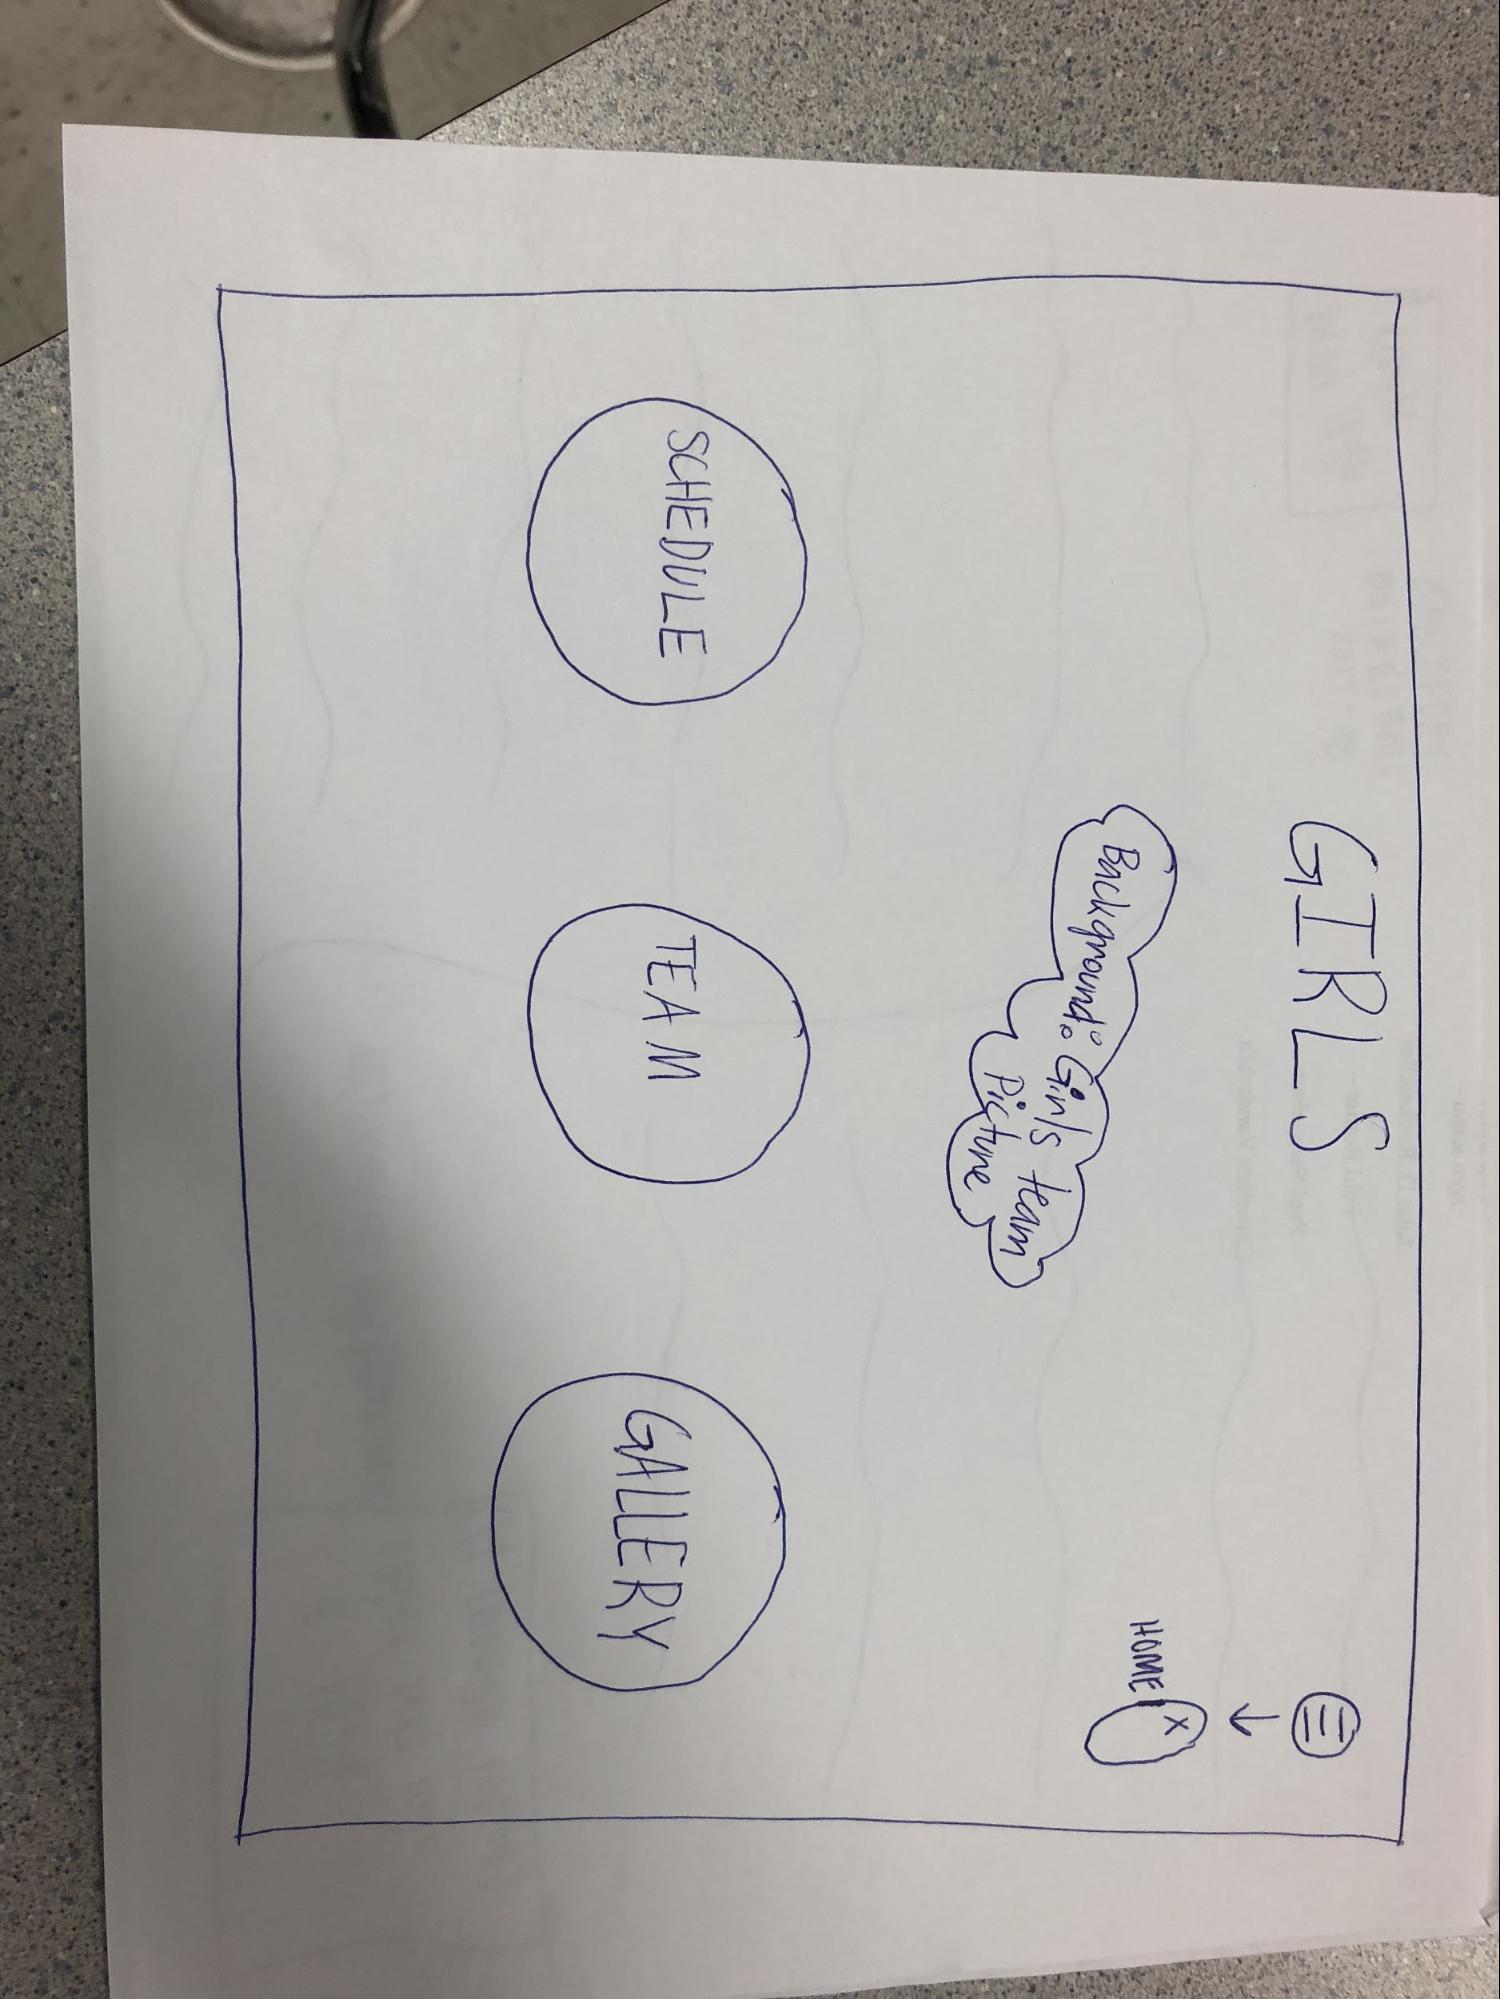 GIRLS
Background: Girls team
Picture
X
HOME
SCHEDULE
TEAM
GALLERY